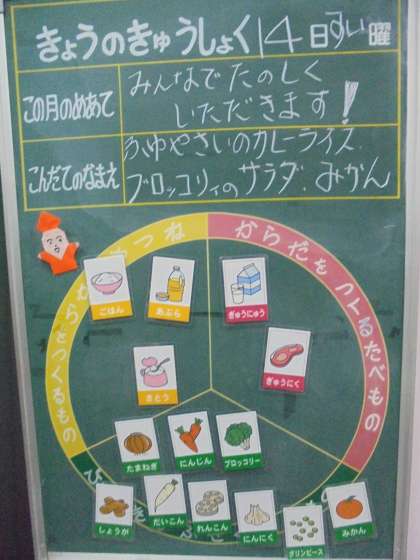 きょうのきゅうしょく 14日すい曜
この月のめあて
みんなでたのしく
いただきます!
こんだてのなまえ
ふゆやさいのカレーライス.
ブロッコリィのサラダ.みかん
つね
からだをつくるたべもの
をつくるもの
ごはん
あぶら
ぎゅうにゅう
さとう
ぎゅうにく
たまねぎ
にんじん
ブロッコリー
しょうが
だいこん
れんこん
にんにく
グリンピース
みかん